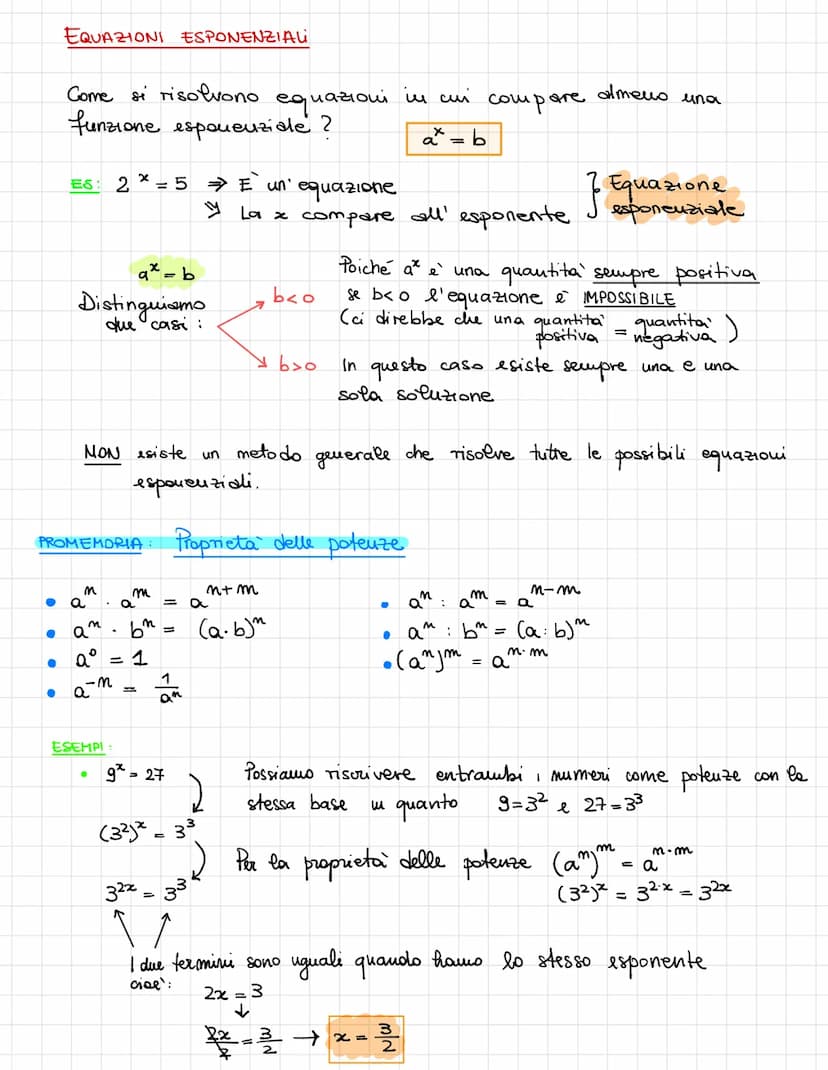 EQUAZIONI ESPONENZIALI
Come si risolvono equazioni in cui compare almeno una
funzione esponenziale?
aˣ = b
ES: 2ˣ = 5 ⇒ È un' equazione
⇒ La x compare all' esponente
} Equazione
esponenziale
aˣ = b
Distinguiamo
due casi:
b<0
Poiché aˣ è una quantità sempre positiva
se b<0 l'equazione è IMPOSSIBILE
(ci direbbe che una quantità positiva = quantità negativa)
b>0
In questo caso esiste sempre una e una
sola soluzione
NON esiste un metodo generale che risolve tutte le possibili equazioni
esponenziali.
PROMEMORIA: Proprietà delle potenze
• aⁿ · aᵐ = aⁿ⁺ᵐ
• aⁿ : aᵐ = aⁿ⁻ᵐ
• aⁿ · bⁿ = (a·b)ⁿ
• aⁿ : bⁿ = (a:b)ⁿ
• a⁰ = 1
• (aⁿ)ᵐ = aⁿ·ᵐ
• a⁻ⁿ = 1/aⁿ
ESEMPI:
• 9ˣ = 27
Possiamo riscrivere entrambi i numeri come potenze con la
stessa base in quanto 9=3² e 27=3³
(3²)ˣ = 3³
Per la proprietà delle potenze (aⁿ)ᵐ = aⁿ·ᵐ
3²ˣ = 3³
(3²)ˣ = 3²·ˣ = 3²ˣ
I due termini sono uguali quando hanno lo stesso esponente
cioè:
2x = 3
↓
2x/2 = 3/2 → x = 3/2